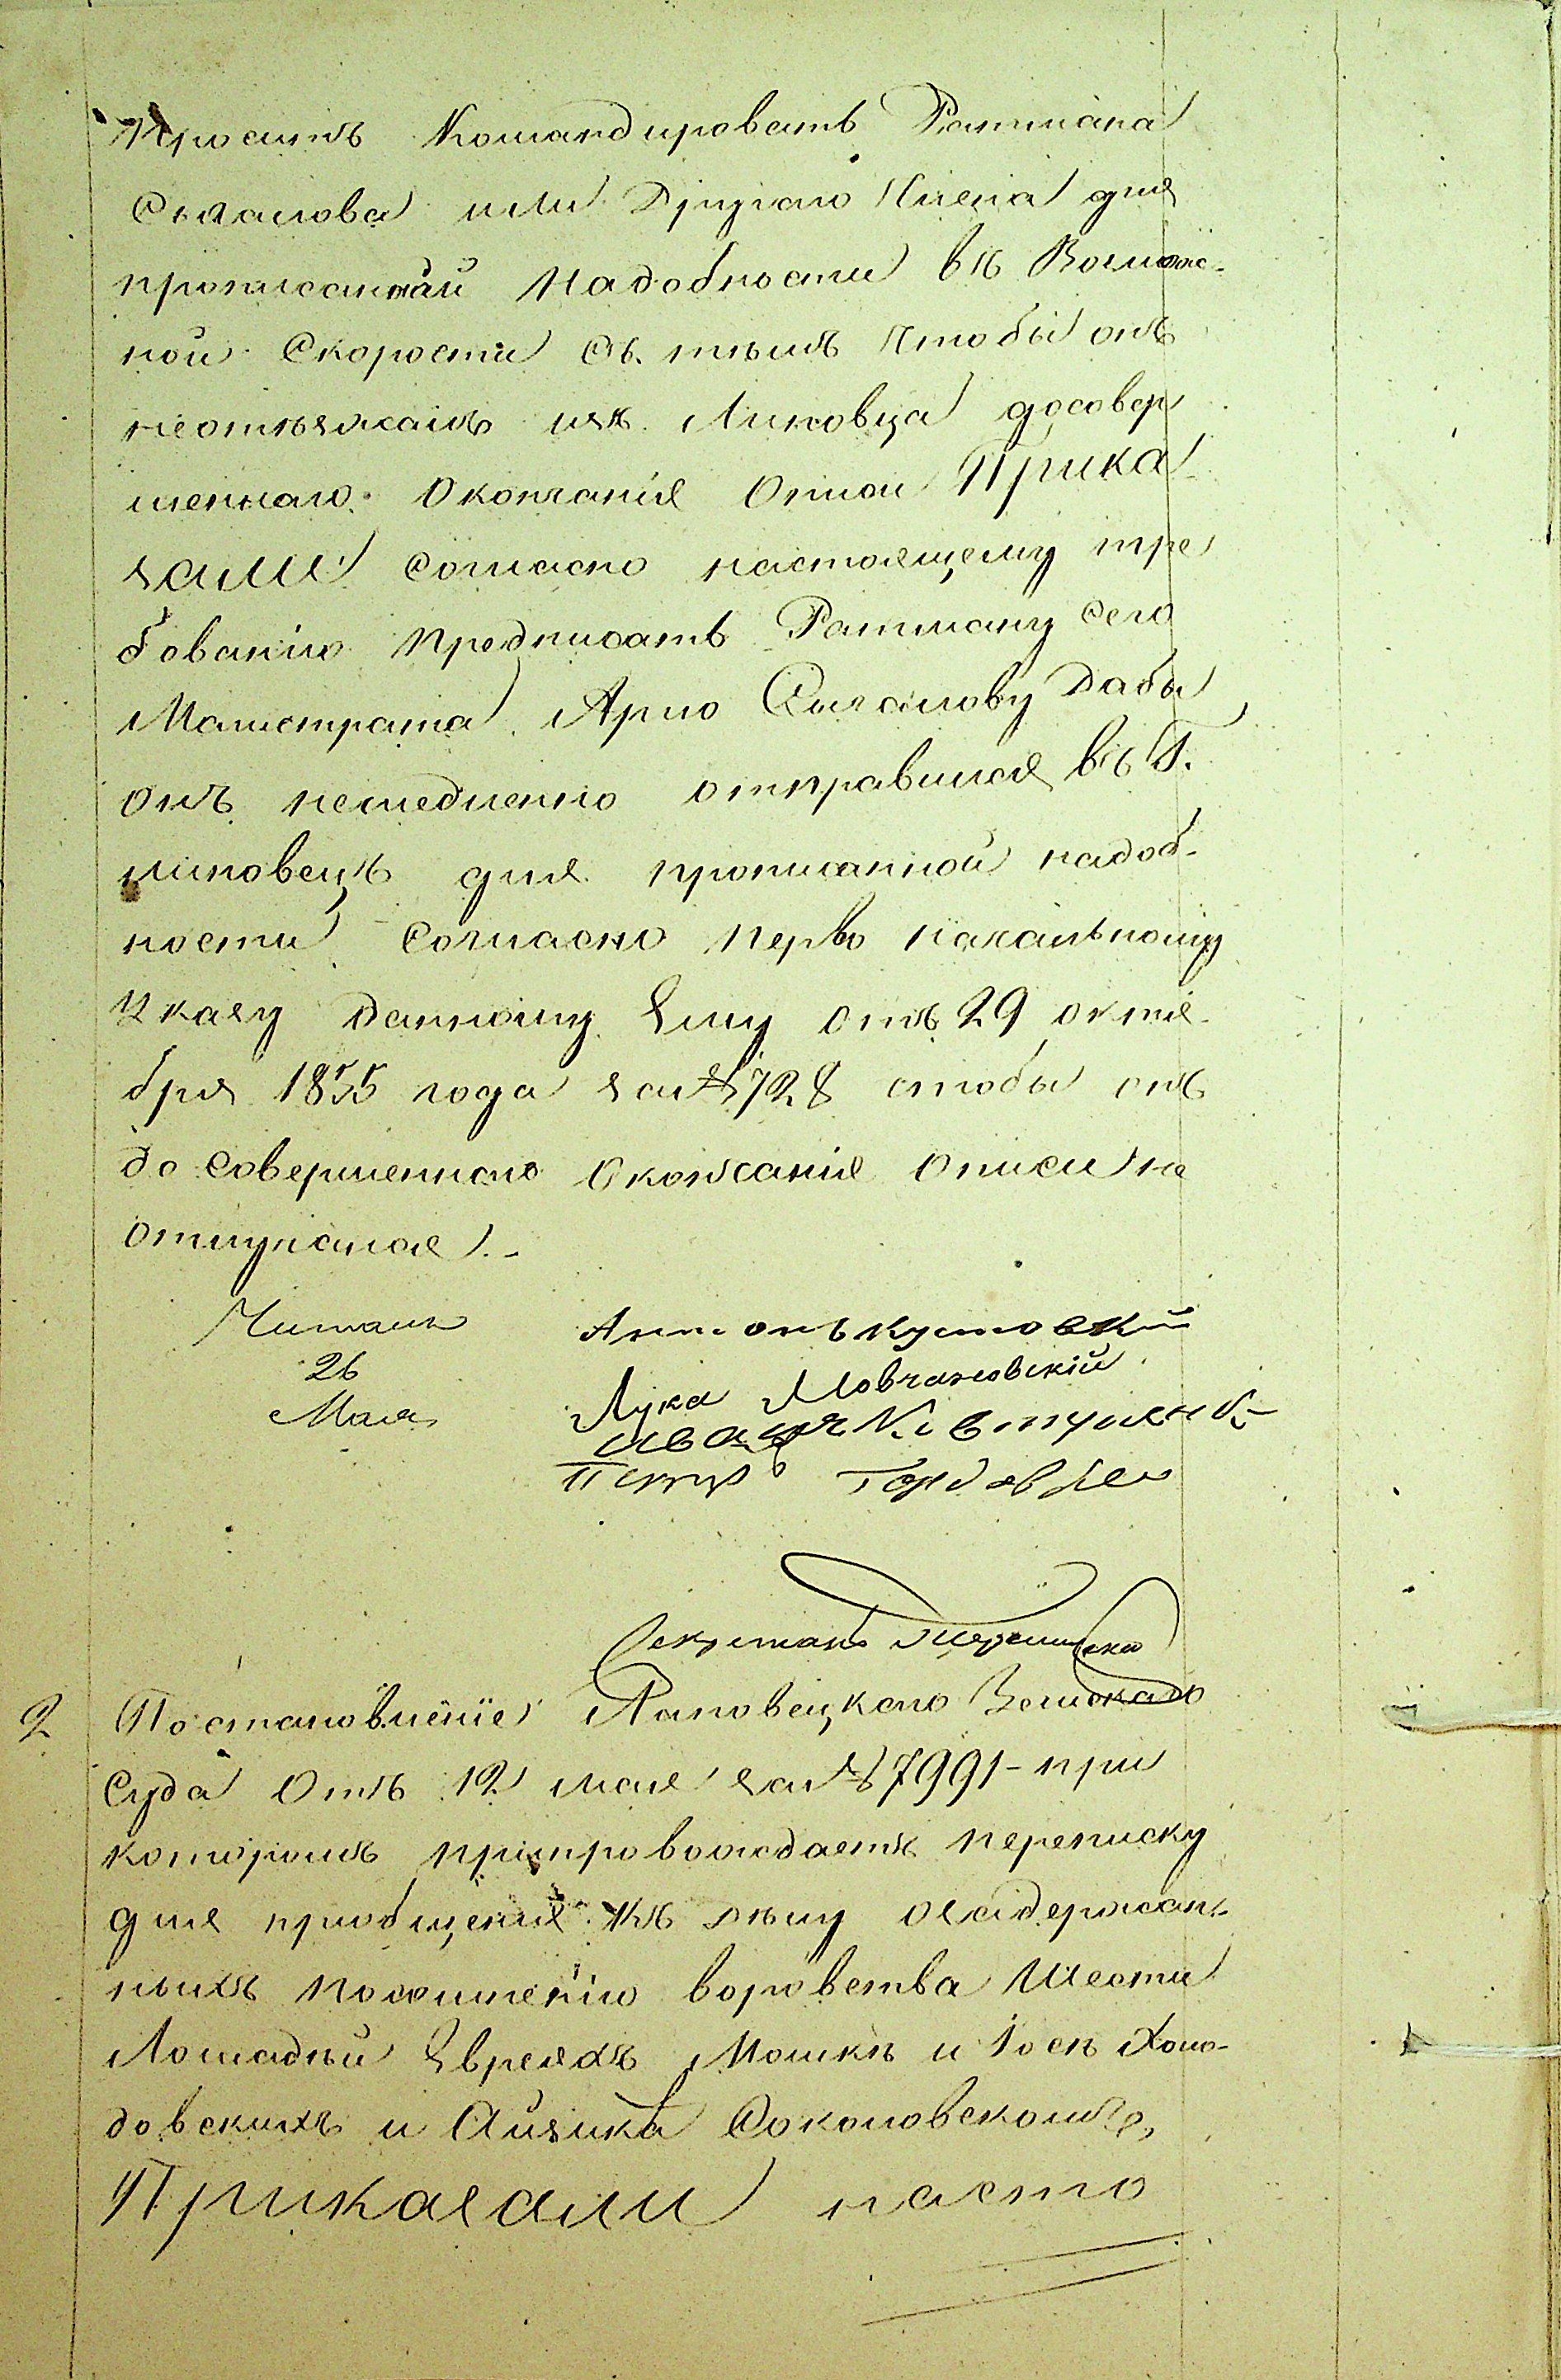 Проситъ Командировать Ратмана
Сычалова или Другаго Члена для
прописанной Надобности въ Возмож-
ной Скорости Съ тѣмъ Чтобы онъ
неотлѣзжалъ изъ Липовца досовер
шеннаго Окончанія Описи Прика
зали Согласно настоящему тре
бованію Предписать Ратману Сего
Магистрата Арию Сычалову Дабы
онъ немедленно отправился въ Г.
Липовецъ для прописанной надоб-
ности Согласно Перво Начальному
Указу Данному Ему отъ 29 октя-
бря 1855 года за № 728 чтобы онъ
до Совершеннаго Окончанія Описи не
отлучался.-
Читалъ Антонъ Кустовскій
26 Лука Мовчановскій
Мая
Петръ
Секретарь
2 Постановленіе Липовецкаго Земскаго
Суда Отъ 12 мая за № 7991 - при
которомъ припровождаетъ переписку
для пріобщенія Къ дѣлу озадержан-
ныхъ Похищенію воровства Шести
Лошадѣй Евреяхъ Мошкѣ и Іосѣ Холо-
довскихъ и Айзика Соколовскомъ,
Приказали насто